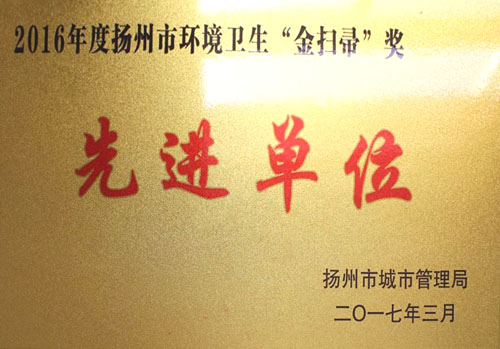 2016年度扬州市环境卫生“金扫帚”奖
先进单位
扬州市城市管理局
二〇一七年三月